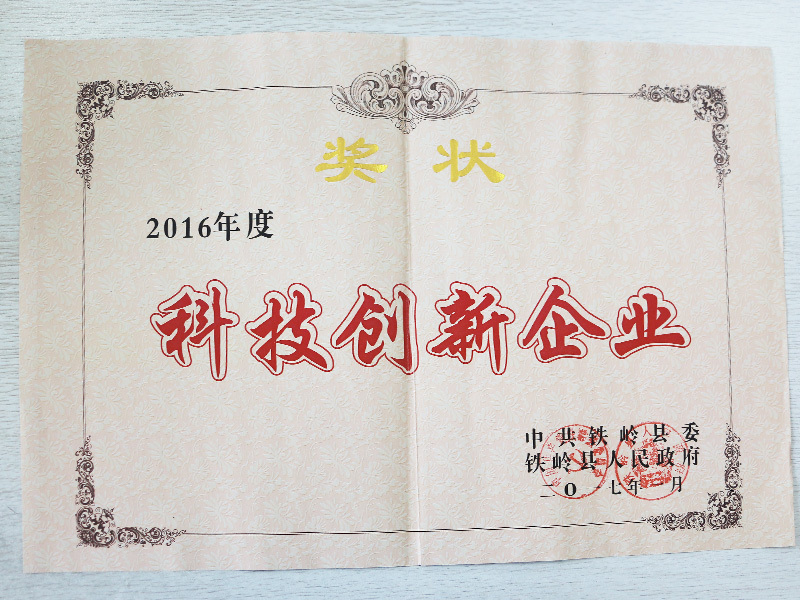 奖状
2016年度
科技创新企业
中共铁岭县委
铁岭县人民政府
二〇一七年 月